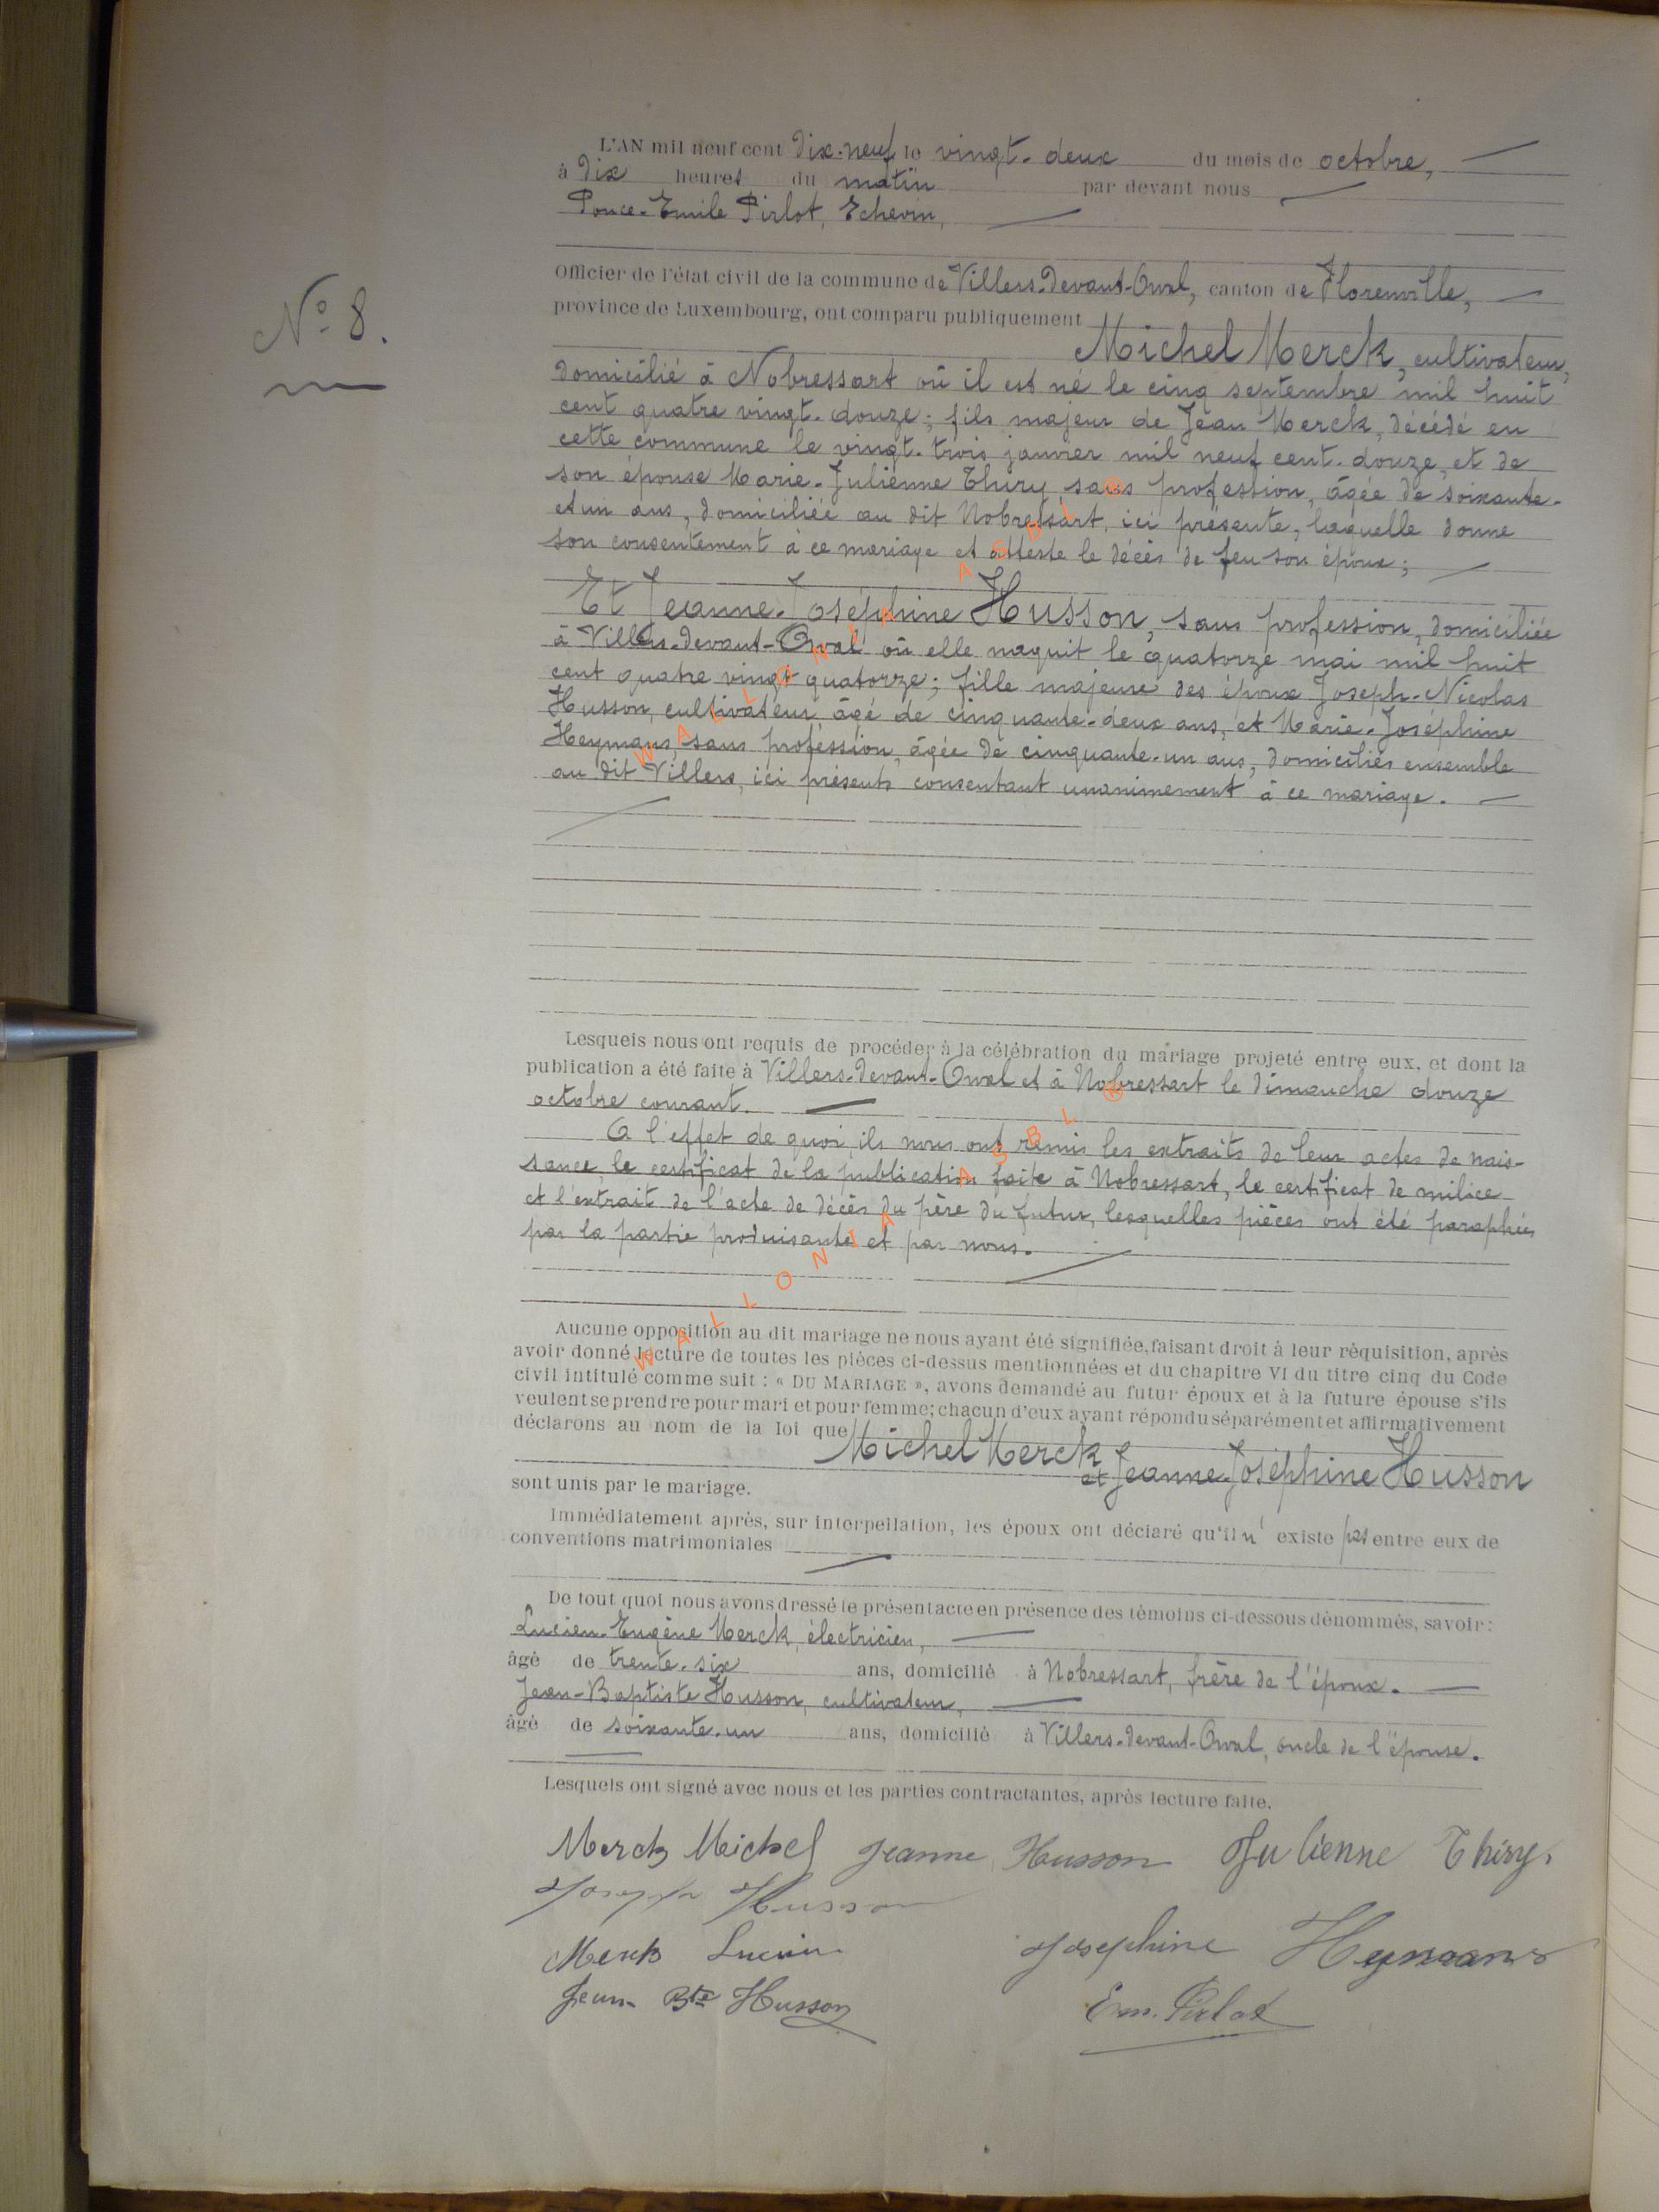 L'AN mil neuf cent dix-neuf le vingt-deux du mois de octobre,
à dix heures du matin par devant nous
Ponce-Emile Pirlot, Echevin,
Officier de l'état civil de la commune de Villers-Devant-Orval, canton de Florenville,
N° 8.
province de Luxembourg, ont comparu publiquement
Michel Merck, cultivateur,
domicilié à Nobressart où il est né le cinq septembre mil huit
cent quatre vingt-douze; fils majeur de Jean Merck, décédé en
cette commune le vingt-trois janvier mil neuf cent-douze, et de
son épouse Marie-Julienne Thiry, sans profession, âgée de soixante-
et un ans, domiciliée au dit Nobressart, ici présente, laquelle donne
son consentement à ce mariage et atteste le décès de feu son époux;
Et Jeanne-Joséphine Husson, sans profession, domiciliée
à Villers-devant-Orval où elle naquit le quatorze mai mil huit
cent quatre vingt quatorze; fille majeure des époux Joseph-Nicolas
Husson, cultivateur, âgé de cinquante-deux ans, et Marie-Joséphine
Heymans, sans profession, âgée de cinquante-un ans, domiciliés ensemble
au dit Villers, ici présents consentant unanimement à ce mariage.
WALLONIA ASBL ®
Lesquels nous ont requis de procéder à la célébration du mariage projeté entre eux, et dont la
publication a été faite à Villers-devant-Orval et à Nobressart le dimanche douze
octobre courant.
A l'effet de quoi, ils nous ont remis les extraits de leur actes de nais-
sance, le certificat de la publication faite à Nobressart, le certificat de milice
et l'extrait de l'acte de décès du père du futur, lesquelles pièces ont été paraphées
par la partie produisante et par nous.
WALLONIA ASBL ®
Aucune opposition au dit mariage ne nous ayant été signifiée, faisant droit à leur réquisition, après
avoir donné lecture de toutes les pièces ci-dessus mentionnées et du chapitre VI du titre cinq du Code
civil intitulé comme suit : « DU MARIAGE », avons demandé au futur époux et à la future épouse s'ils
veulent se prendre pour mari et pour femme; chacun d'eux ayant répondu séparément et affirmativement
déclarons au nom de la loi que Michel Merck
et Jeanne-Joséphine Husson
sont unis par le mariage.
Immédiatement après, sur interpellation, les époux ont déclaré qu'il n' existe pas entre eux de
conventions matrimoniales
De tout quoi nous avons dressé le présent acte en présence des témoins ci-dessous dénommés, savoir :
Lucien-Eugène Merck, électricien,
âgé de trente-six ans, domicilié à Nobressart, frère de l'époux.
Jean-Baptiste Husson, cultivateur,
âgé de soixante-un ans, domicilié à Villers-devant-Orval, oncle de l'épouse.
Lesquels ont signé avec nous et les parties contractantes, après lecture faite.
Merck Michel Jeanne Husson Julienne Thiry
Joseph Husson
Merck Lucien Joséphine Heymans
Jean-Bte Husson Em. Pirlot